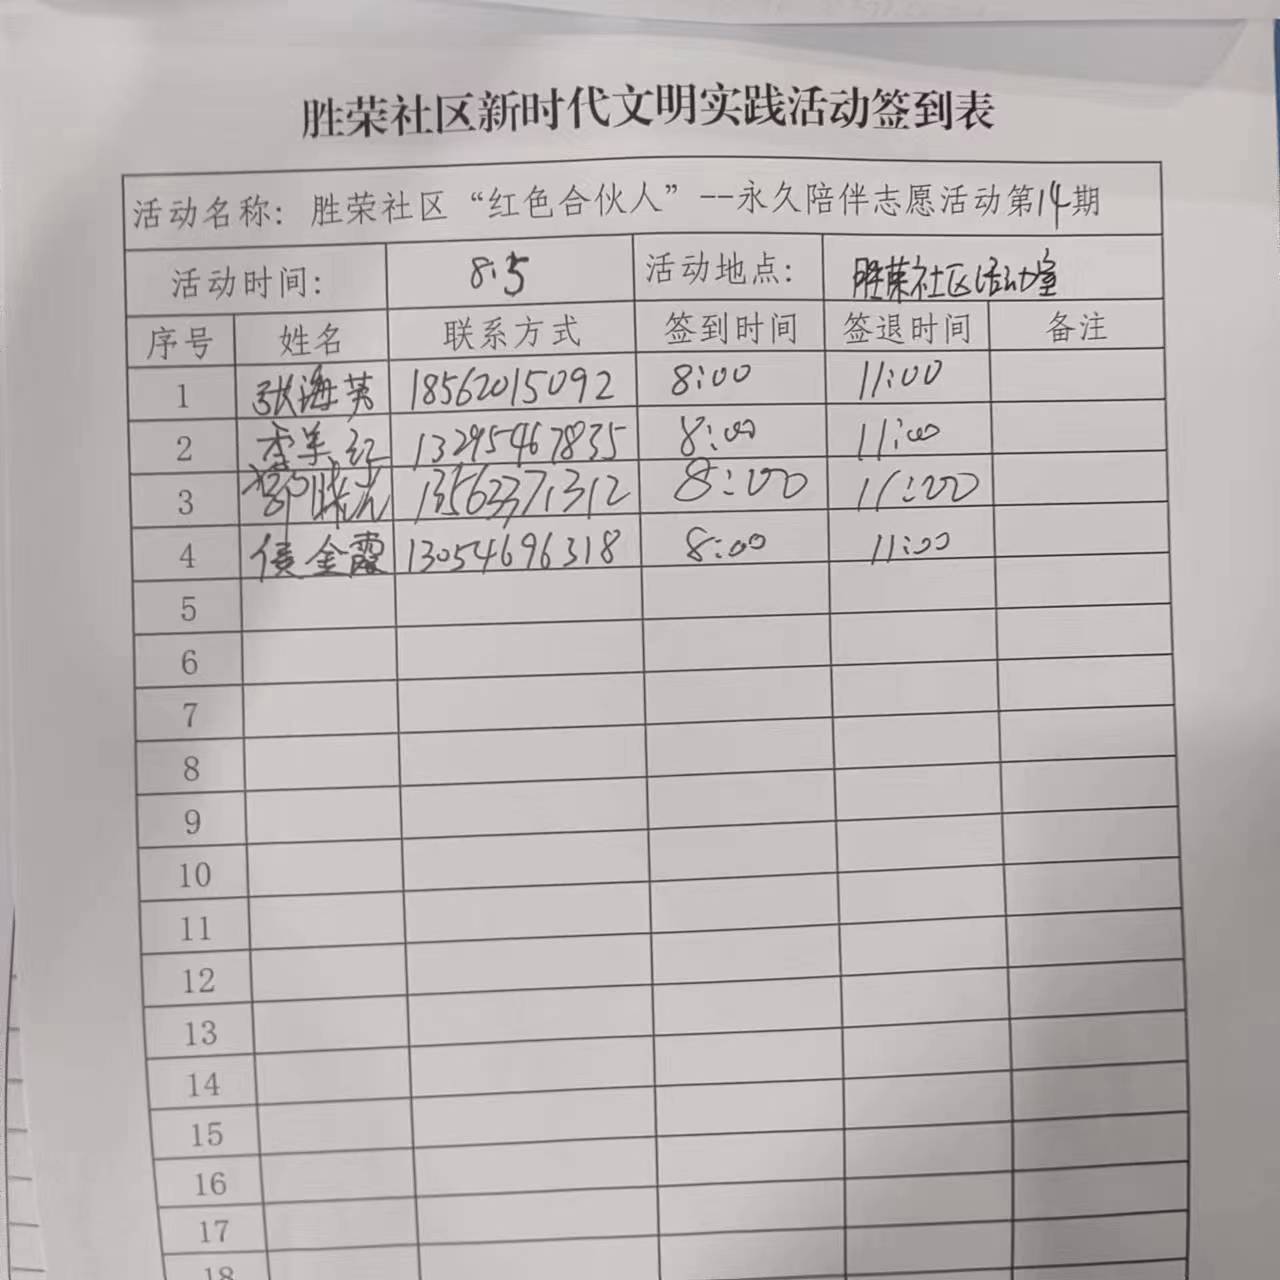 胜荣社区新时代文明实践活动签到表
活动名称: 胜荣社区“红色合伙人”--永久陪伴志愿活动第14期
活动时间: 8.5 活动地点: 胜荣社区活动室
序号 姓名 联系方式 签到时间 签退时间 备注
1 张海英 18562015092 8:00 11:00
2 李美红 13295467835 8:00 11:00
3 13563371312 8:00 11:00
4 侯金霞 13054696318 8:00 11:00
5
6
7
8
9
10
11
12
13
14
15
16
17
18